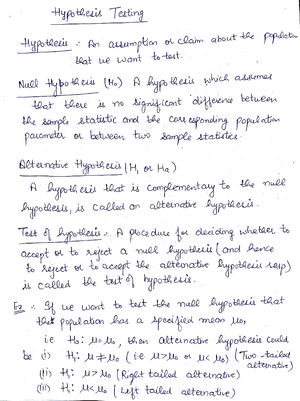 Hypothesis Testing
Hypothesis :- An assumption or claim about the population
that we want to test.
Null Hypothesis (H₀) A hypothesis which assumes
that there is no significant difference between
the sample statistic and the corresponding population
parameter or between two sample statistics.
Alternative Hypothesis (H₁ or Ha)
A hypothesis that is complementary to the null
hypothesis, is called an alternative hypothesis.
Test of hypothesis :- A procedure for deciding whether to
accept or to reject a null hypothesis (and hence
to reject or to accept the alternative hypothesis resp)
is called the test of hypothesis.
Ex :- If we want to test the null hypothesis that
the population has a specified mean μ₀,
i.e H₀: μ=μ₀, then alternative hypothesis could
be (i) H₁: μ ≠ μ₀ (i.e μ>μ₀ or μ<μ₀) (Two tailed
alternative)
(ii) H₁: μ>μ₀ (Right tailed alternative)
(iii) H₁: μ<μ₀ (Left tailed alternative)